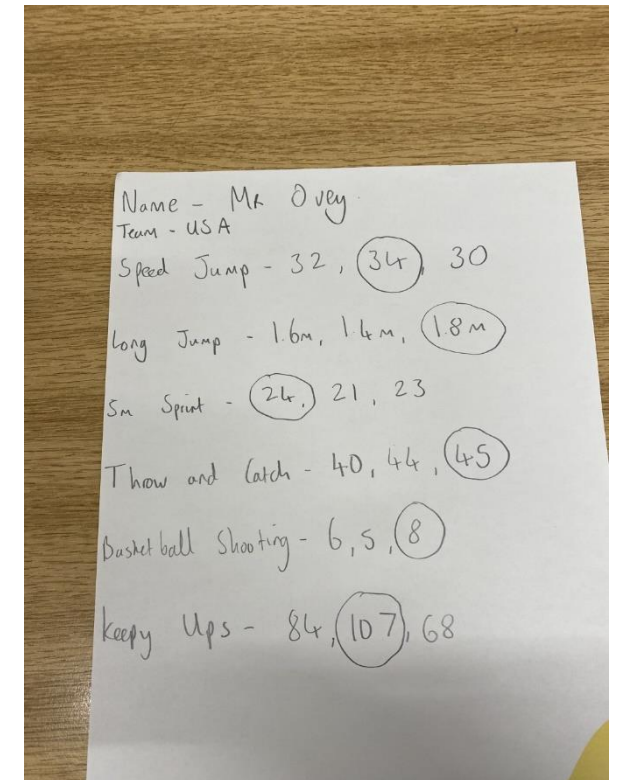 Name - Mr Ovey
Team - USA
Speed Jump - 32, 34, 30
Long Jump - 1.6m, 1.4m, 1.8m
5m Sprint - 24, 21, 23
Throw and Catch - 40, 44, 45
Basketball Shooting - 6, 5, 8
Keepy Ups - 84, 107, 68